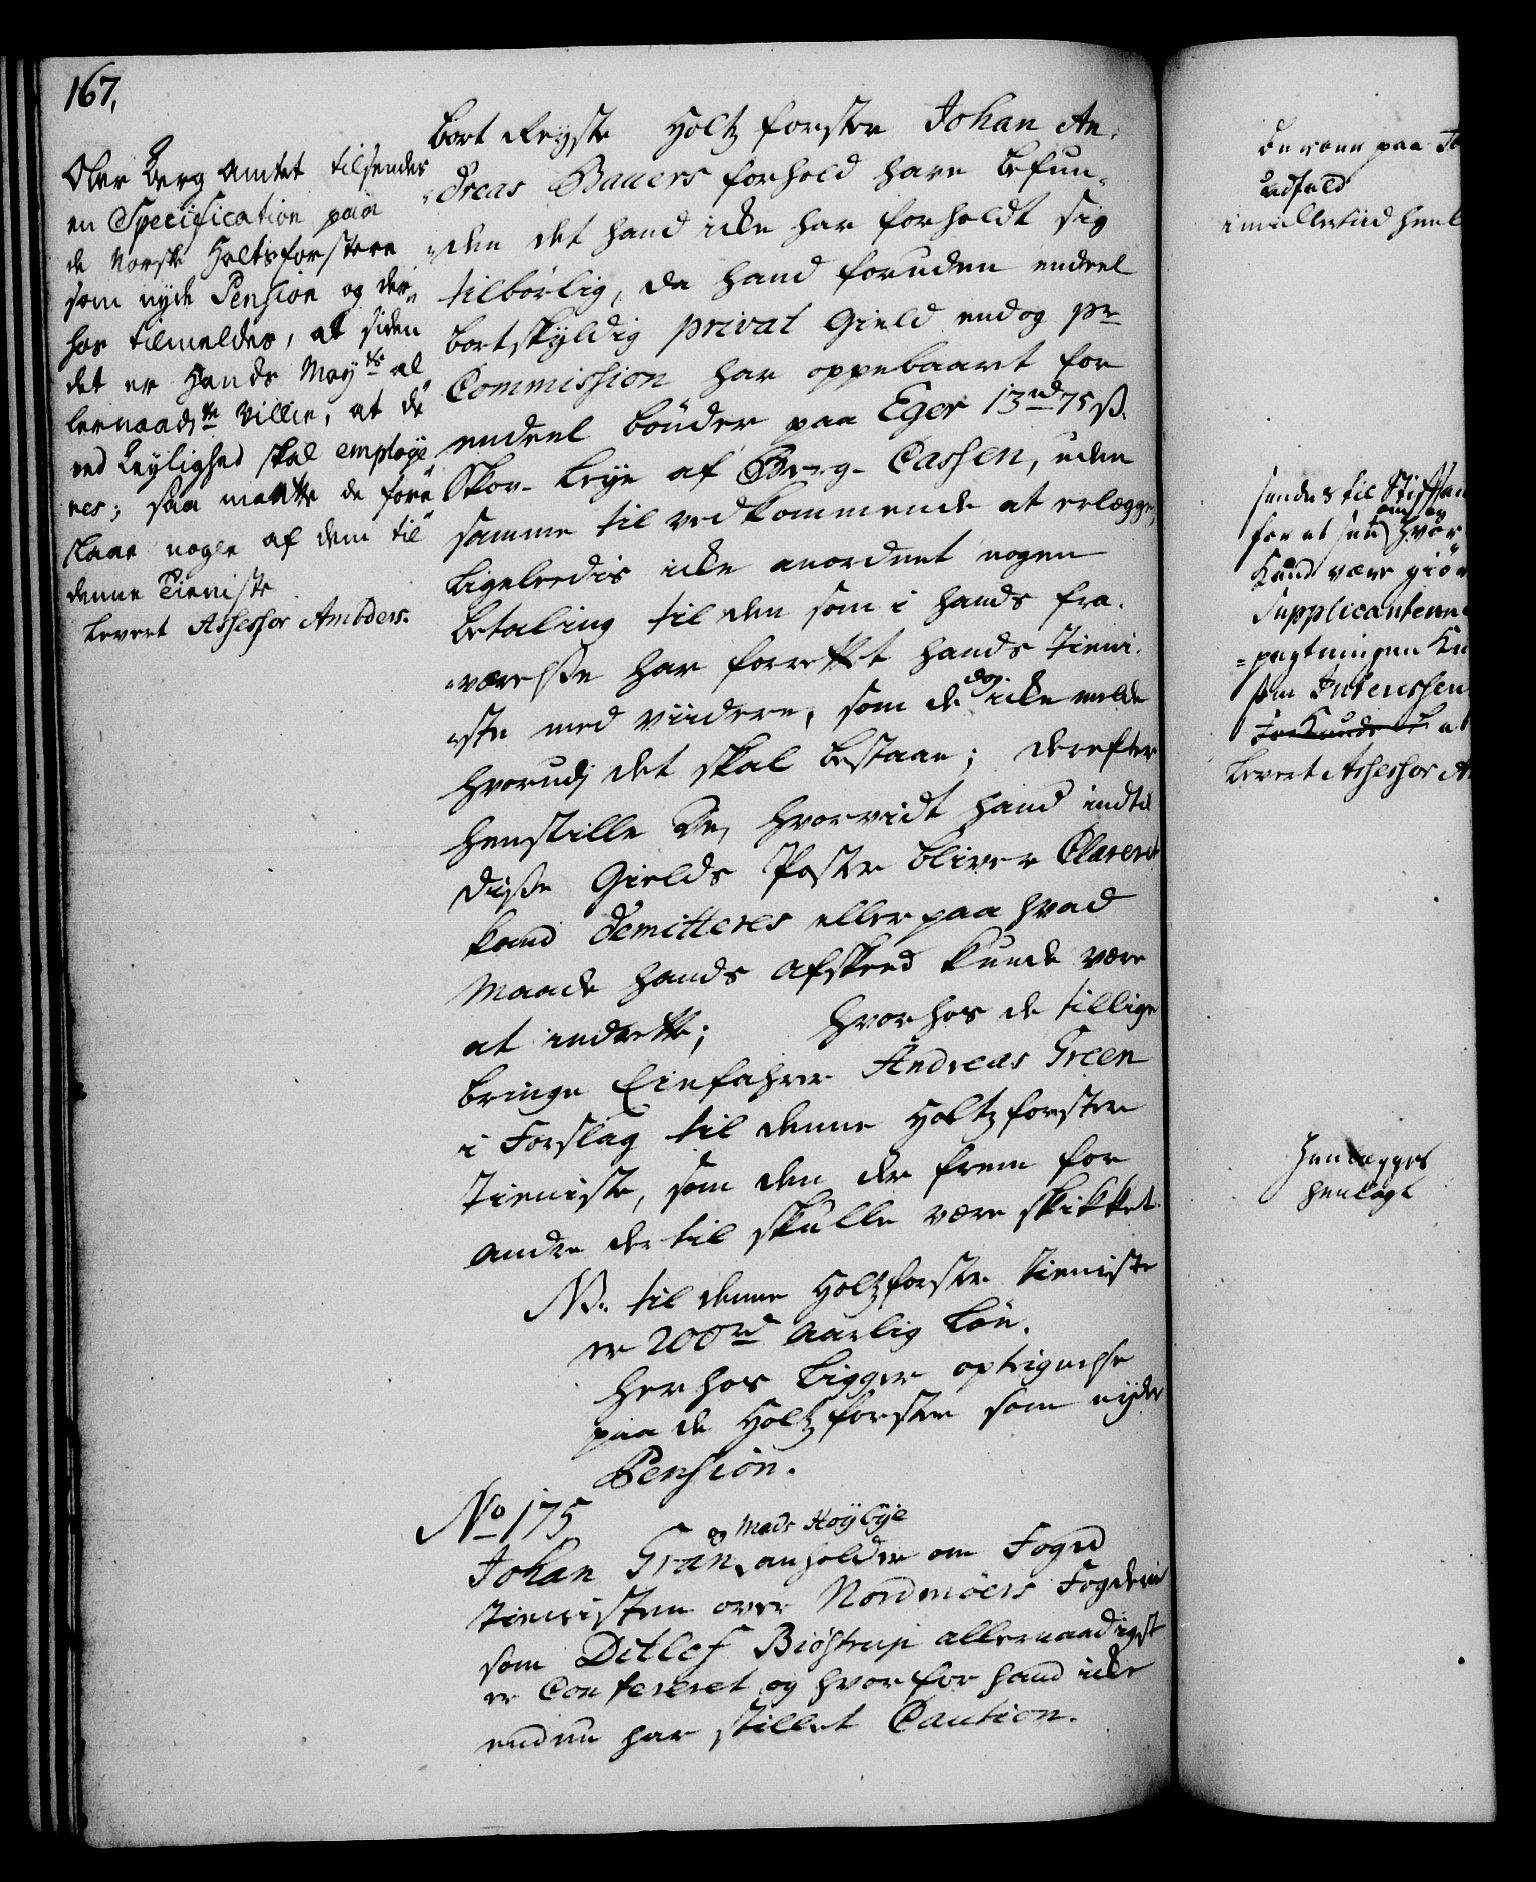 167,
Ober Berg Amtet tilsendes
en Specification paa
de Norske Holtzforstere
som nyde Pension og der„
hos tilmeldes, at siden
det er Hands Mayts al„
lernaadste Villie, at de
ved Leylighed skal employe„
res; saa maatte de fore„
slaae nogle af dem til
denne Tieniste
Levert Assessor Ambders.
bort Reyste Holtzforster Johan An„
„dreas Bauers forhold have befun„
„den det hand icke har forholdt sig
tilbørlig, da hand foruden endeel
bortskyldig privat Gield endog pr
Commission har oppebaaret for
endeel bønder paa Eger 13rd 75ß.
Skov-Leye af Berg-Cassen, uden
samme til vedkommende at erlægge,
Ligeledis icke anordnet nogen
betaling til den som i hands fra„
„værelse har forrettet hands Tieni„
„ste med viidere, som de dog icke melde
hvorudj det skal bestaae; derefter
henstille de, hvorvidt hand indtil
disse Gields Poster bliver Clareret
kand demitteres eller paa hvad
Maade hands afskeed kunde være
at indrette; hvorhos de tillige
bringe Einfahrer Andreas Green
i Forslag til denne Holtzforster
Tieniste, som den der frem for
andre dertil skulle være skikket.
NB. til denne Holtzforster tieniste
er 200rd Aarlig Løn.
Herhos Ligger optegnelse
paa de Holtzforster som nyder
Pension.
No 175
Johan Gran, og Mads Høybye anholder om Fogd
tienisten over Nordmøers Fogderie
som Ditlef Biøstrup allernaadigst
er Confereret og hvorfor hand icke
endnu har stillet Caution.
paa
udfald
imidlertiid
sendes til
for at om og hvor
Kand være
Supplicanterne
som
Levert Assessor
Henlegges
henlagt